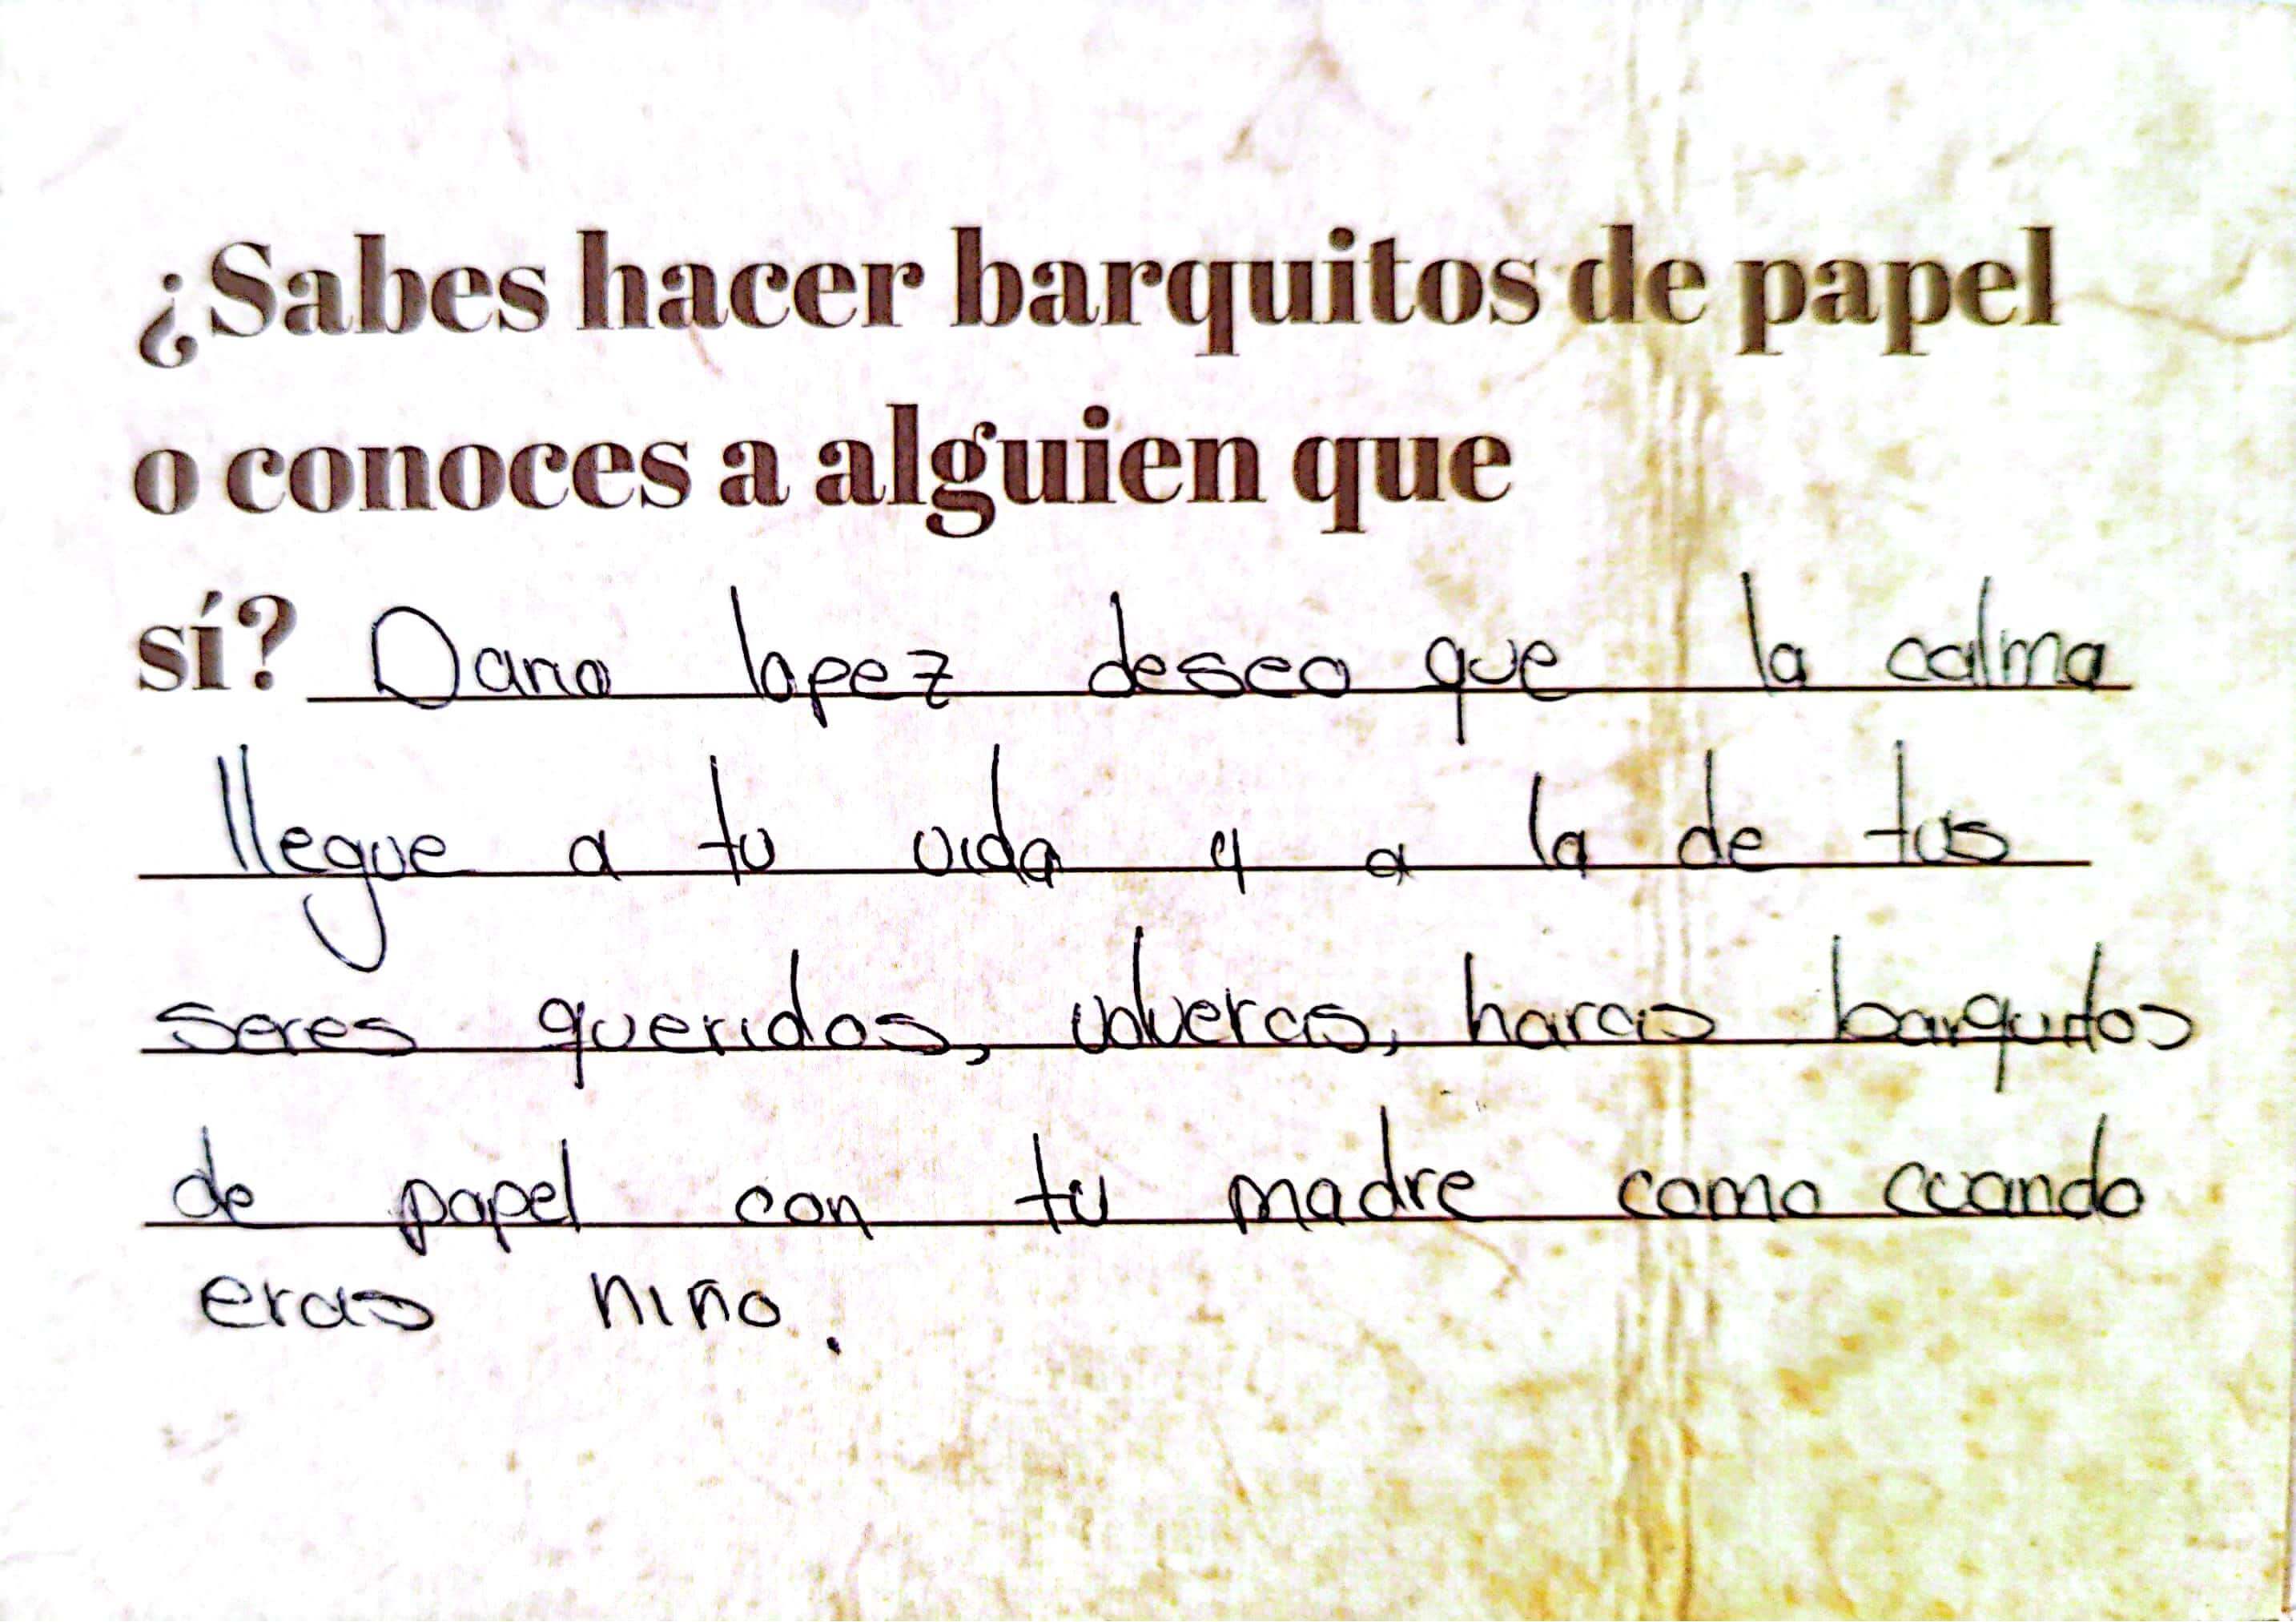 ¿Sabes hacer barquitos de papel
o conoces a alguien que
sí? Dana lopez deseo que la calma
llegue a tu vida y a la de tus
seres queridos, volveras, haras barquitos
de papel con tu madre como cuando
eras niño.